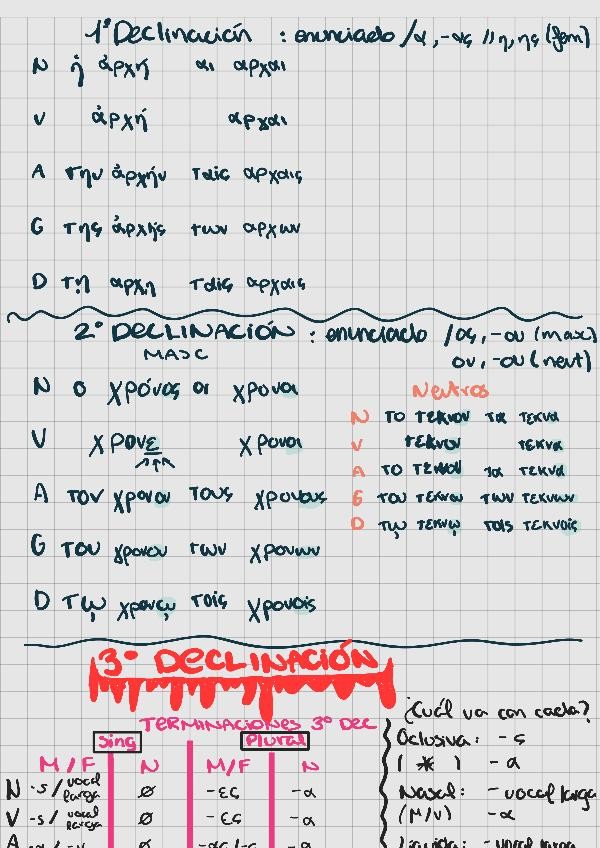 1ª Declinación : enunciado /α, -ας // η, ης (fem)
N ἡ ἀρχή αι αρχαι
V ἀρχή αρχαι
A την ἀρχήν ταις αρχαις
G της ἀρχής των αρχων
D τῃ αρχη ταις αρχαις
2º DECLINACIÓN : enunciado /ος, -ου (masc)
MASC ον, -ου (neut)
N ο χρόνος οι χρονοι
V χρονε χρονοι
A τον χρονον τους χρονους
G του χρονου των χρονων
D τῳ χρονῳ τοις χρονοις
Neutros
N το τεκνον τα τεκνα
V τεκνον τεκνα
A το τεκνον τα τεκνα
G του τεκνου των τεκνων
D τῳ τεκνῳ τοις τεκνοις
3º DECLINACIÓN
TERMINACIONES 3º DEC
Sing Plural
M/F N M/F N
N -s/vocal larga ø -ες -α
V -s/vocal larga ø -ες -α
A ø -α
¿Cuál va con cada?
Oclusiva: -ς
( * ) -α
Nasal: -vocal larga
(M/ν) -α
Líquida: -vocal larga